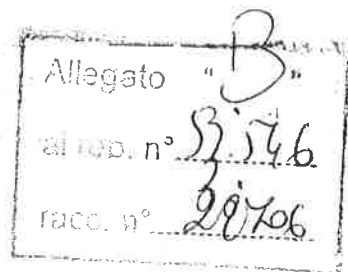 Allegato "B"
al rep. n° 53.546
racc. n° 28706